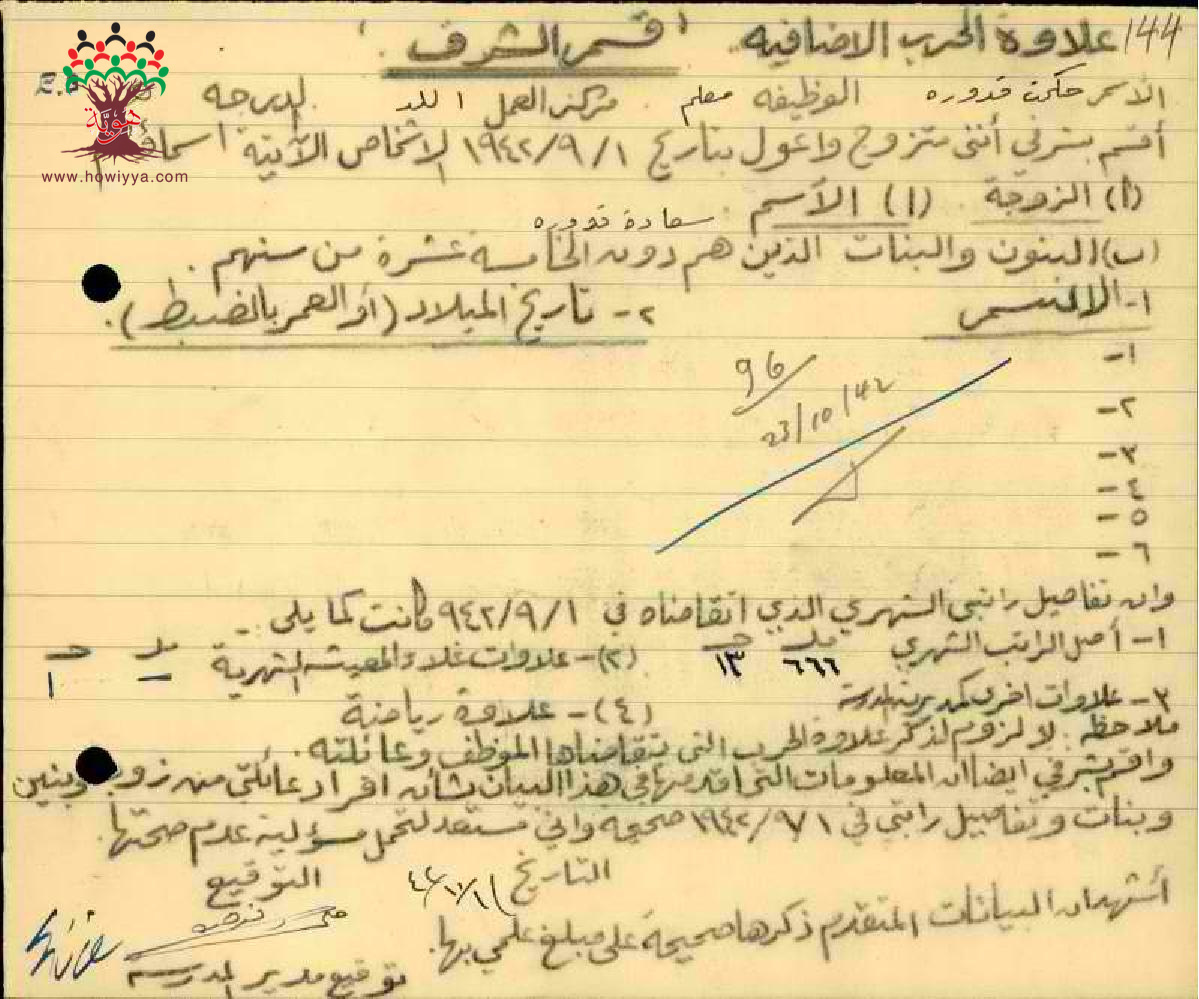 144
علاوة الحرب الاضافيه "قسم الشرف"
الاسم حكمت قدوره الوظيفه معلم مركز العمل اللد الدرجه
أقسم بشرفي أنني متزوج واعول بتاريخ ١/٩/١٩٤٢ الاشخاص الآتية اسماؤهم
(أ) الزوجة (١) الأسم سعادة قدوره
(ب) البنون والبنات الذين هم دون الخامسة عشرة من سنهم.
١- الاسم ٢- تاريخ الميلاد (أو العمر بالضبط).
١-
٢-
٣-
٤-
٥-
٦-
96
23/10/42
وان تفاصيل راتبي الشهري الذي اتقاضاه في ١/٩/٩٤٢ كانت كما يلي -
١- أصل الراتب الشهري مل ٦٦٦ جـ ١٣ (٢)- علاوات غلاء المعيشه الشهرية مل - جـ ١
٣- علاوات اخرى كمديرية المدرسة (٤)- علاوة رياضية
ملاحظه: لا لزوم لذكر علاوة الحرب التي يتقاضاها الموظف وعائلته.
واقسم بشرفي ايضا ان المعلومات التي اقدمها في هذا البيان بشأن افراد عائلتي من زوجة وبنين
وبنات وتفاصيل راتبي في ١/٩/١٩٤٢ صحيحه واني مستعد لتحمل مسؤولية عدم صحتها.
التاريخ التوقيع
أشهد ان البيانات المتقدم ذكرها صحيحة على مبلغ علمي بها.
توقيع مدير المدرسه
هويّة
www.howiyya.com